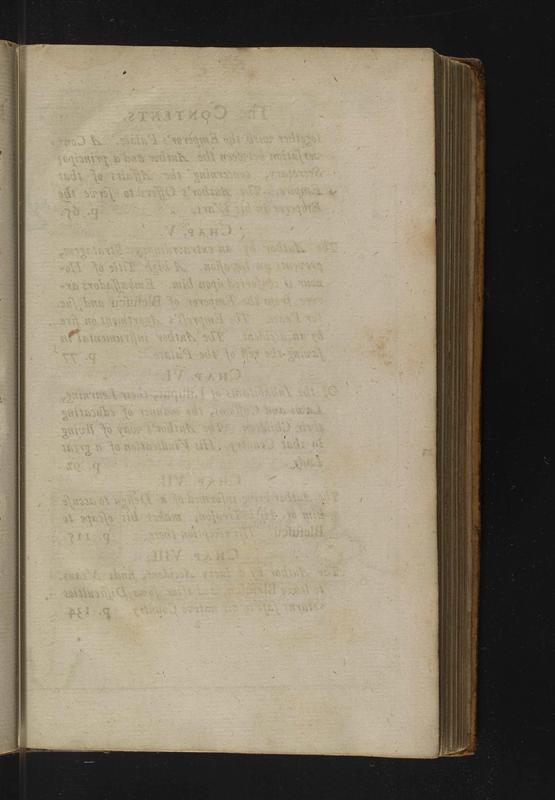 The CONTENTS.
together with the Emperor's Palace. A Con-
versation between the Author and a principal
Secretary, concerning the Affairs of that
Empire. The Author's Offers to serve the
Emperor in his Wars. p. 65.
CHAP. V.
The Author by an extraordinary Stratagem,
prevents an Invasion. A high Title of Ho-
nour is conferred upon him. Embassadors ar-
rive from the Emperor of Blefuscu and sue
for Peace. The Empress's Apartment on fire
by an accident. The Author instrumental in
saving the rest of the Palace. p. 77
CHAP. VI.
Of the Inhabitants of Lilliput; their Learning,
Laws and Customs, the manner of educating
their Children. The Author's way of living
in that Country. His Vindication of a great
Lady. p. 92
CHAP. VII.
The Author being informed of a Design to accuse
him of High Treason, makes his escape to
Blefuscu. His reception there. p. 115
CHAP. VIII.
The Author by a lucky Accident, finds Means
to leave Blefuscu, and after some Difficulties
returns safe to his native Country. p. 134